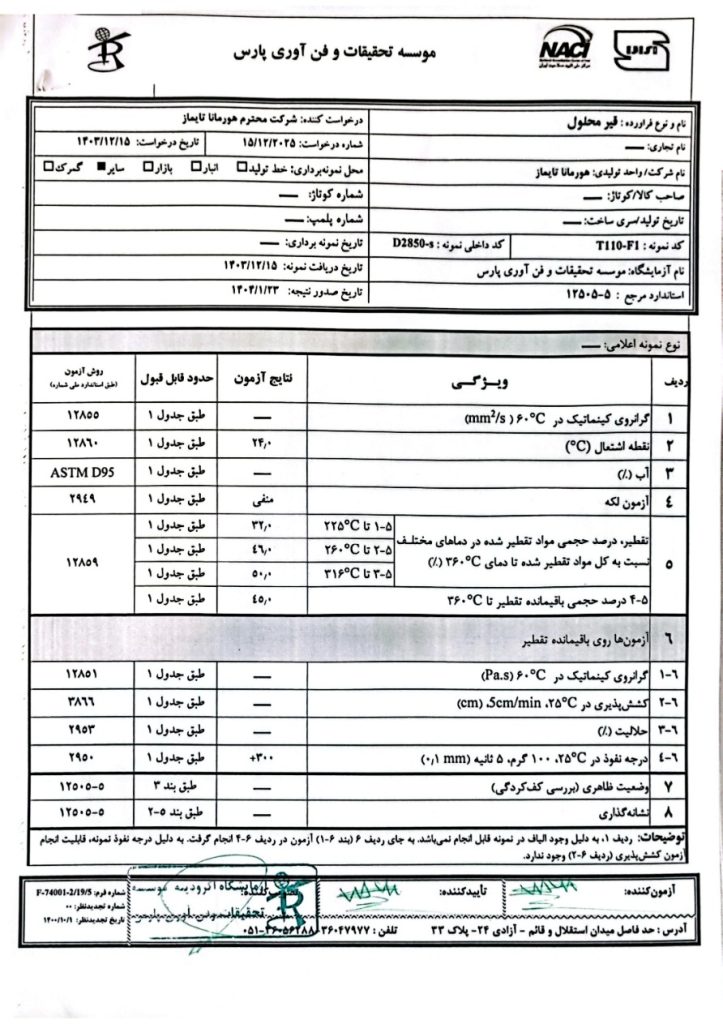 موسسه تحقیقات و فن آوری پارس
NACI
نام و نوع فراورده : قیر محلول
درخواست کننده: شرکت محترم هورمانا تایماز
نام تجاری: —
شماره درخواست: ۱۵/۱۲/۲۰۲۵
تاریخ درخواست: ۱۴۰۳/۱۲/۱۵
نام شرکت/ واحد تولیدی: هورمانا تایماز
محل نمونه‌برداری: خط تولید□ انبار□ بازار□ سایر■ گمرک□
صاحب کالا/کوتاژ: —
شماره کوتاژ: —
تاریخ تولید/سری ساخت: —
شماره پلمپ: —
کد نمونه : T110-F1
کد داخلی نمونه : D2850-s
تاریخ نمونه برداری: —
نام آزمایشگاه: موسسه تحقیقات و فن آوری پارس
تاریخ دریافت نمونه: ۱۴۰۳/۱۲/۱۵
استاندارد مرجع : ۵-۱۲۵۰۵
تاریخ صدور نتیجه: ۱۴۰۴/۱/۲۳
نوع نمونه اعلامی: —
ردیف ویژگی نتایج آزمون حدود قابل قبول روش آزمون
(طبق استاندارد ملی شماره)
۱ گرانروی کینماتیک در ۶۰°C ( mm²/s) — طبق جدول ۱ ۱۲۸۵۵
۲ نقطه اشتعال (°C) ۲۴٫۰ طبق جدول ۱ ۱۲۸۶۰
۳ آب (٪) — طبق جدول ۱ ASTM D95
۴ آزمون لکه منفی طبق جدول ۱ ۲۹۴۹
۵ تقطیر، درصد حجمی مواد تقطیر شده در دماهای مختلف
نسبت به کل مواد تقطیر شده تا دمای ۳۶۰°C (٪)
۱-۵ تا ۲۲۵°C ۳۲٫۰ طبق جدول ۱
۲-۵ تا ۲۶۰°C ۴۶٫۰ طبق جدول ۱
۳-۵ تا ۳۱۶°C ۵۰٫۰ طبق جدول ۱
۱۲۸۵۹
۴-۵ درصد حجمی باقیمانده تقطیر تا ۳۶۰°C ۴۵٫۰ طبق جدول ۱
۶ آزمون‌ها روی باقیمانده تقطیر
۱-۶ گرانروی کینماتیک در ۶۰°C (Pa.s) — طبق جدول ۱ ۱۲۸۵۱
۲-۶ کشش‌پذیری در ۲۵°C، 5cm/min، (cm) — طبق جدول ۱ ۳۸۶۶
۳-۶ حلالیت (٪) — طبق جدول ۱ ۲۹۵۳
۴-۶ درجه نفوذ در ۲۵°C، ۱۰۰ گرم، ۵ ثانیه (۰٫۱ mm) +۳۰۰ طبق جدول ۱ ۲۹۵۰
۷ وضعیت ظاهری (بررسی کف‌کردگی) — طبق بند ۳ ۵-۱۲۵۰۵
۸ نشانه‌گذاری — طبق بند ۵-۲ ۵-۱۲۵۰۵
توضیحات: ردیف ۱، به دلیل وجود الیاف در نمونه قابل انجام نمی‌باشد. به جای ردیف ۶ (بند ۶-۱) آزمون در ردیف ۶-۴ انجام گرفت. به دلیل درجه نفوذ نمونه، قابلیت انجام
آزمون کشش‌پذیری (ردیف ۶-۲) وجود ندارد.
آزمون‌کننده: تاییدکننده:
موسسه
پارس
شماره فرم: F-74001-2/19/5
شماره تجدیدنظر: ۰۰
تاریخ تجدیدنظر: ۱۴۰۰/۱۰/۱
آدرس : حد فاصل میدان استقلال و قائم - آزادی ۲۴- پلاک ۳۳ تلفن : ۳۶۰۴۷۹۷۷